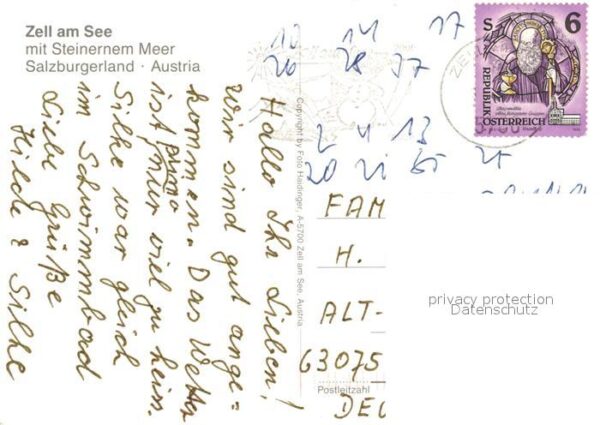 Zell am See
mit Steinernem Meer
Salzburgerland · Austria
10 14 17
20 28 37
2 4 13
20 21 25
S 6
REPUBLIK
ÖSTERREICH
Copyright by Foto Haidinger, A-5700 Zell am See, Austria.
Hallo Ihr Lieben!
wir sind gut ange=
kommen. Das Wetter
ist prima hier viel zu heiß.
Silke war gleich
im Schwimmbad
Liebe Grüße
Heide & Silke
FAM
H.
ALT-
63075
Postleitzahl
DEU
privacy protection
Datenschutz